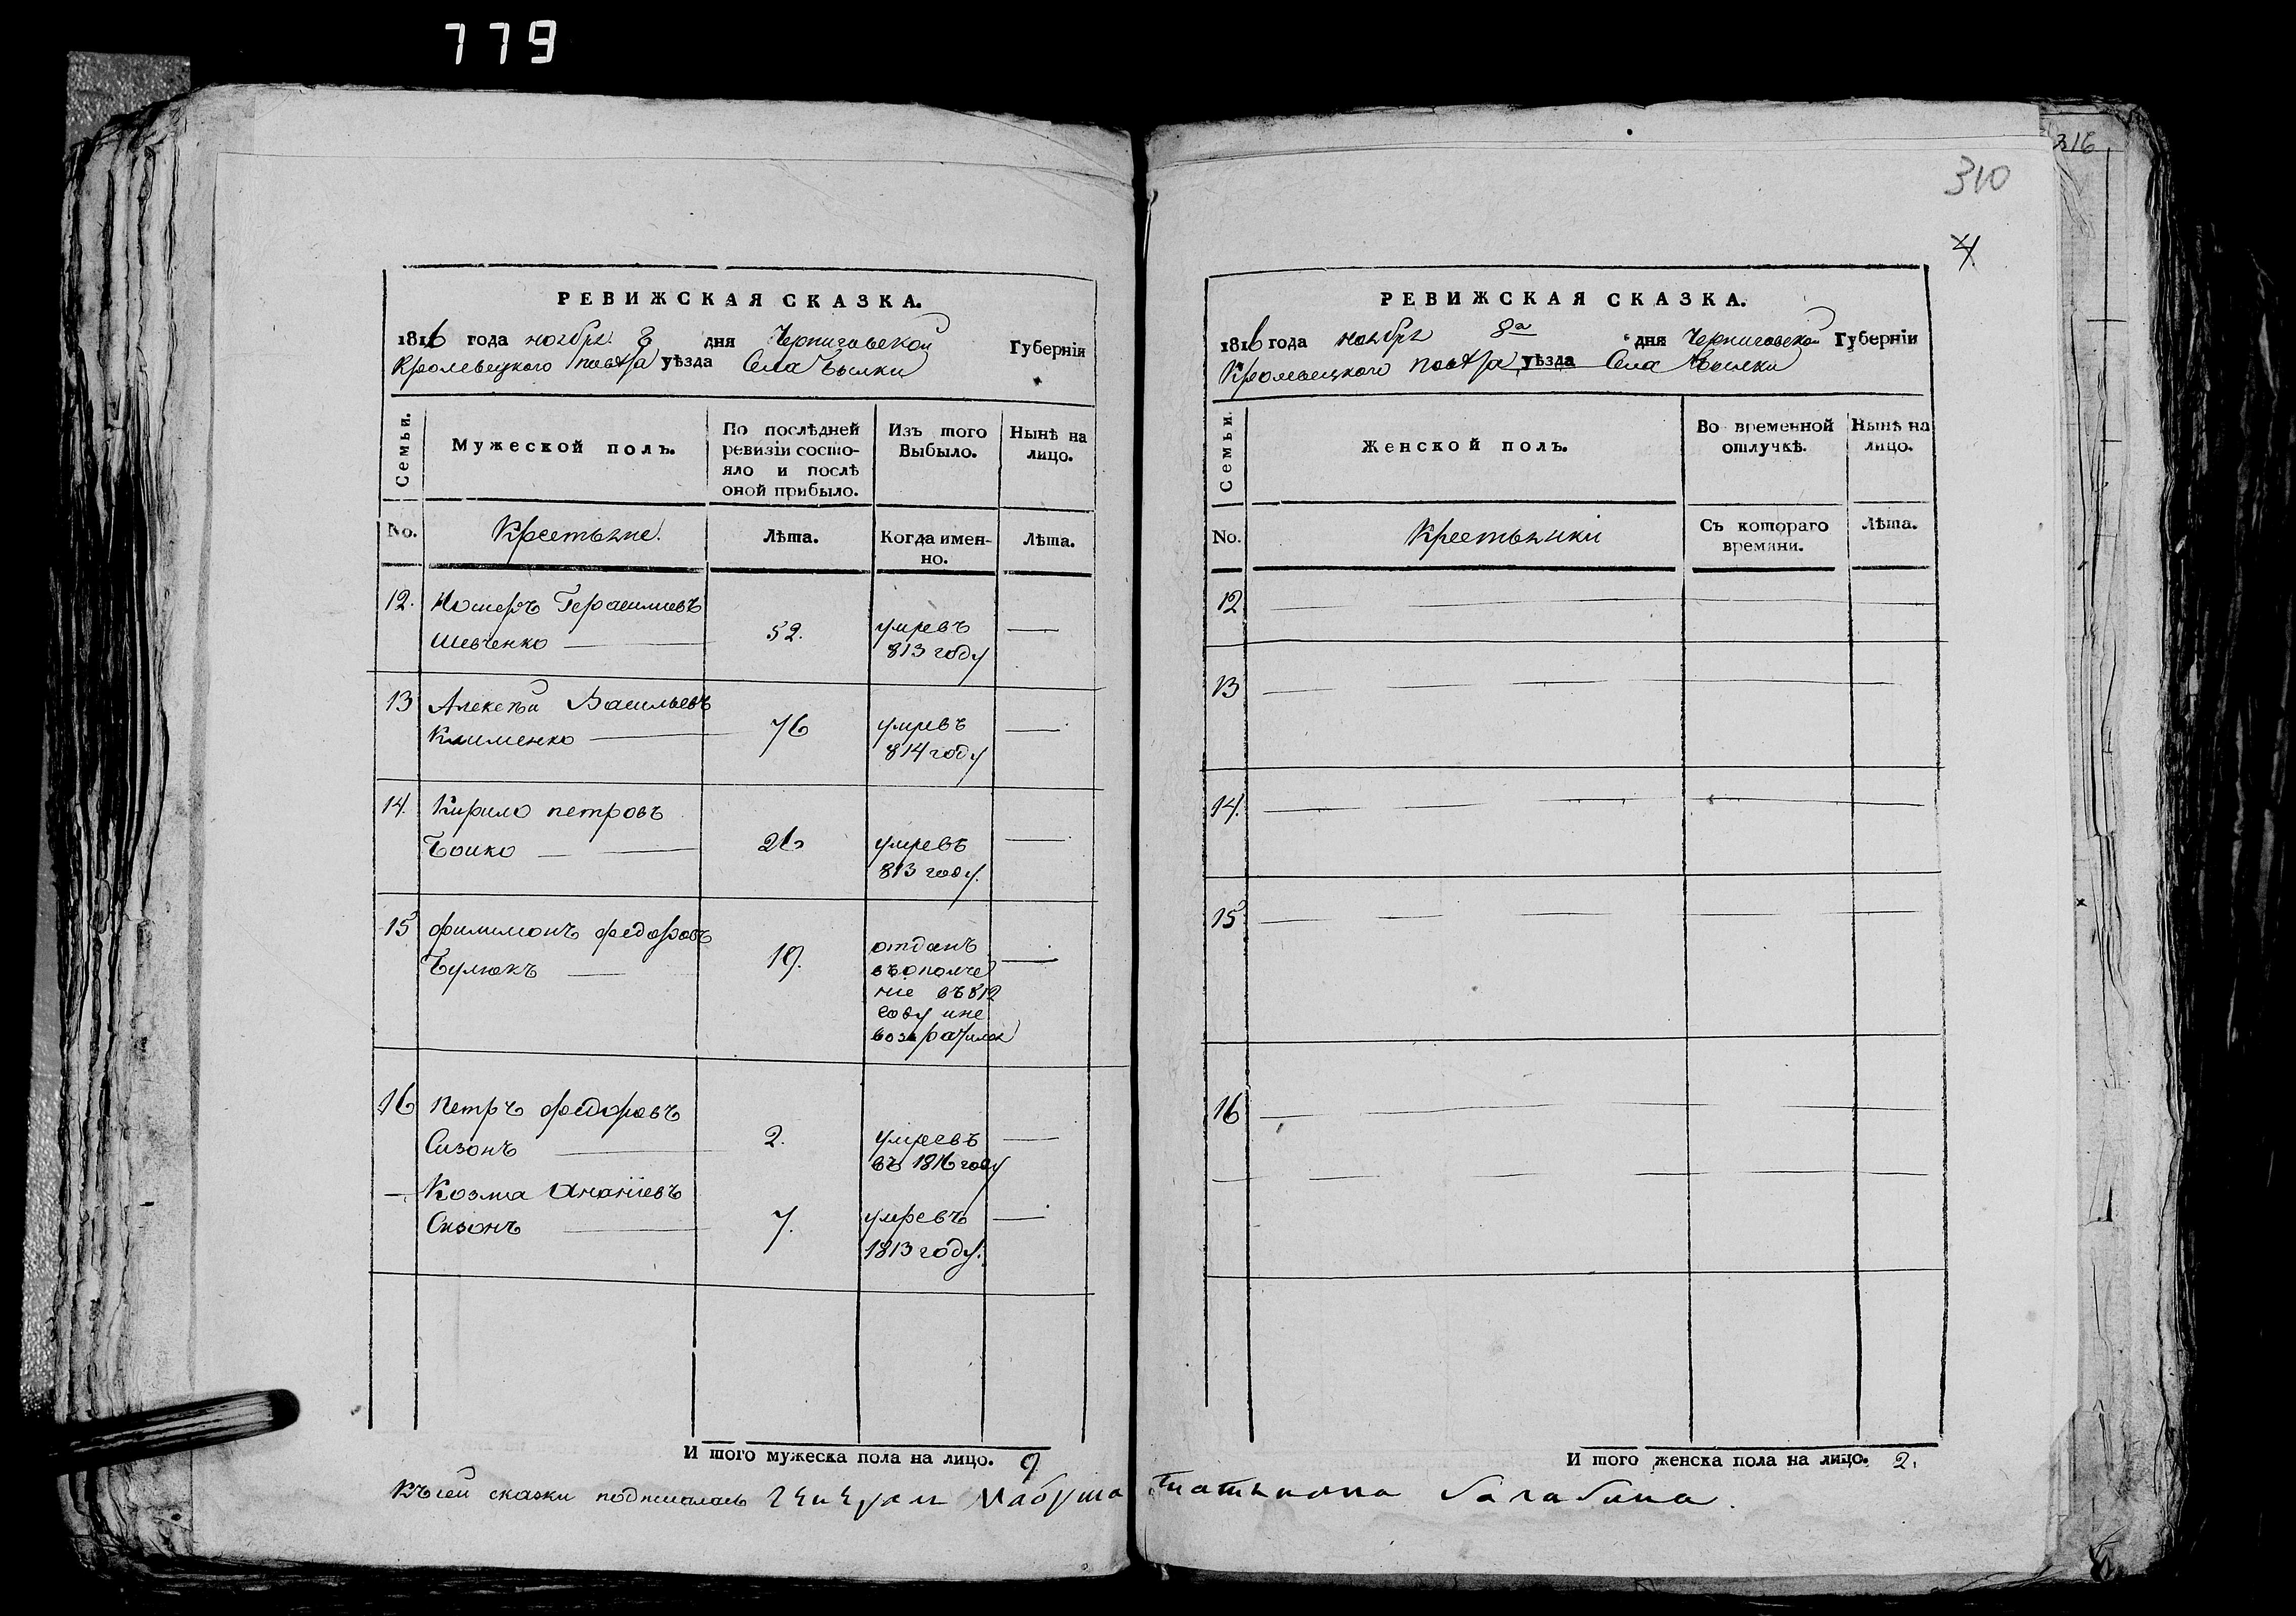 779
РЕВИЖСКАЯ СКАЗКА.
1816 года ноября 8 дня Черниговской Губернїи
Кролевецкого повѣта уѣзда Села Быжки
Семьи.
Мужеской полъ.
По послѣдней ревизїи состояло и послѣ оной прибыло.
Изъ того Выбыло.
Нынѣ на лицо.
No.
Крестьяне.
Лѣта.
Когда именно.
Лѣта.
12. Герасимовъ
Шевченко 52. умревъ
813 году
13 Алексѣй Васильевъ
Клименко 76 умревъ
814 году
14. Кирило петровъ
Бойко 26 умревъ
813 году.
15 филимонъ федоровъ
Булюкъ 19. отданъ
въ ополче
ние въ 812
году и не
возвратился
16 Петръ федоровъ
Сизонъ 2. умревъ
въ 1816 году
Козма Ананїевъ
Сизонъ 7. умревъ
1813 году.
И того мужеска пола на лицо.
316
310
4
РЕВИЖСКАЯ СКАЗКА.
1816 года ноября 8а дня Черниговской Губернїи
Кролевецкого повѣта уѣзда Села
Семьи.
Женской полъ.
Во временной отлучкѣ.
Нынѣ на лицо.
No.
Крестьянки
Съ котораго времяни.
Лѣта.
12
13
14.
15
16
И того женска пола на лицо. 2.
Къ сей сказки подписалась